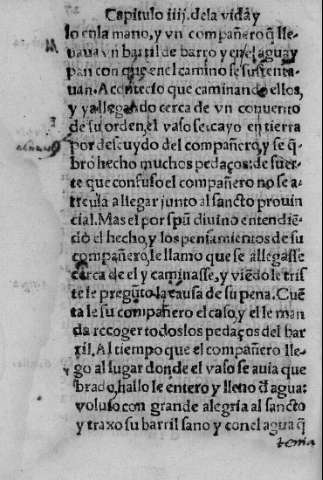 Capitulo iiij. dela vida y
lo en la mano, y vn compañero q̃ lle
uaua vn barril de barro y en el agua y
pan con que en el camino se sustenta
uan. Acontecio que caminando ellos,
y ya llegando cerca de vn conuento
de su orden, el vaso se cayo en tierra
por descuydo del compañero, y se q̃
bro hecho muchos pedaços: de suer
te que confuso el compañero no se a-
treuia a llegar junto al sancto prouin
cial. Mas el por spũ diuino entendiẽ
do el hecho, y los pensamientos de su
compañero, le llamo que se allegasse
cerca de el y caminasse, y viẽdo le tris
te le pregũto la causa de su pena. Cuẽ
ta le su compañero el caso, y el le man
da recoger todos los pedaços del bar
ril. Al tiempo que el compañero lle-
go al lugar donde el vaso se auia que
brado, hallo le entero y lleno d̃ agua:
voluio con grande alegria al sancto
y traxo su barril sano y con el agua q̃
tenia